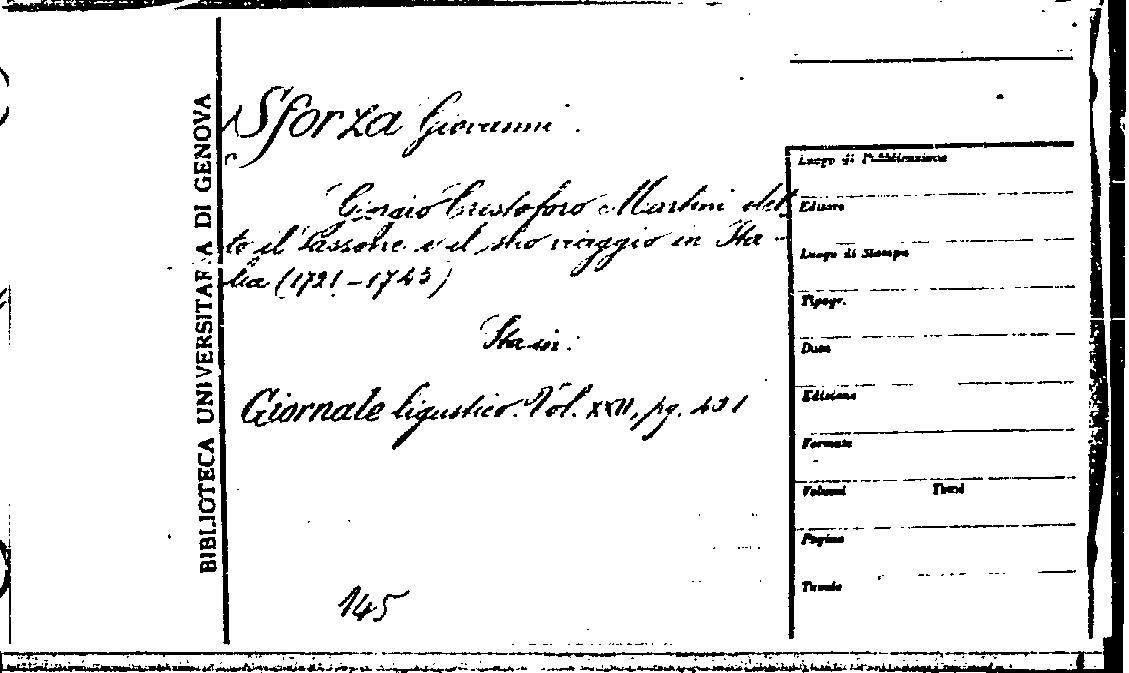 BIBLIOTECA UNIVERSITARIA DI GENOVA
Sforza Giovanni.
Giorgio Cristoforo Martini det
to il Sassone e il suo viaggio in Ita-
lia (1721-1745)
Sta in:
Giornale ligustico. Vol. XXII, pg.
145
Luogo di Pubblicazione
Editore
Luogo di Stampa
Tipogr.
Data
Edizione
Formato
Volumi Tomi
Pagine
Tavole